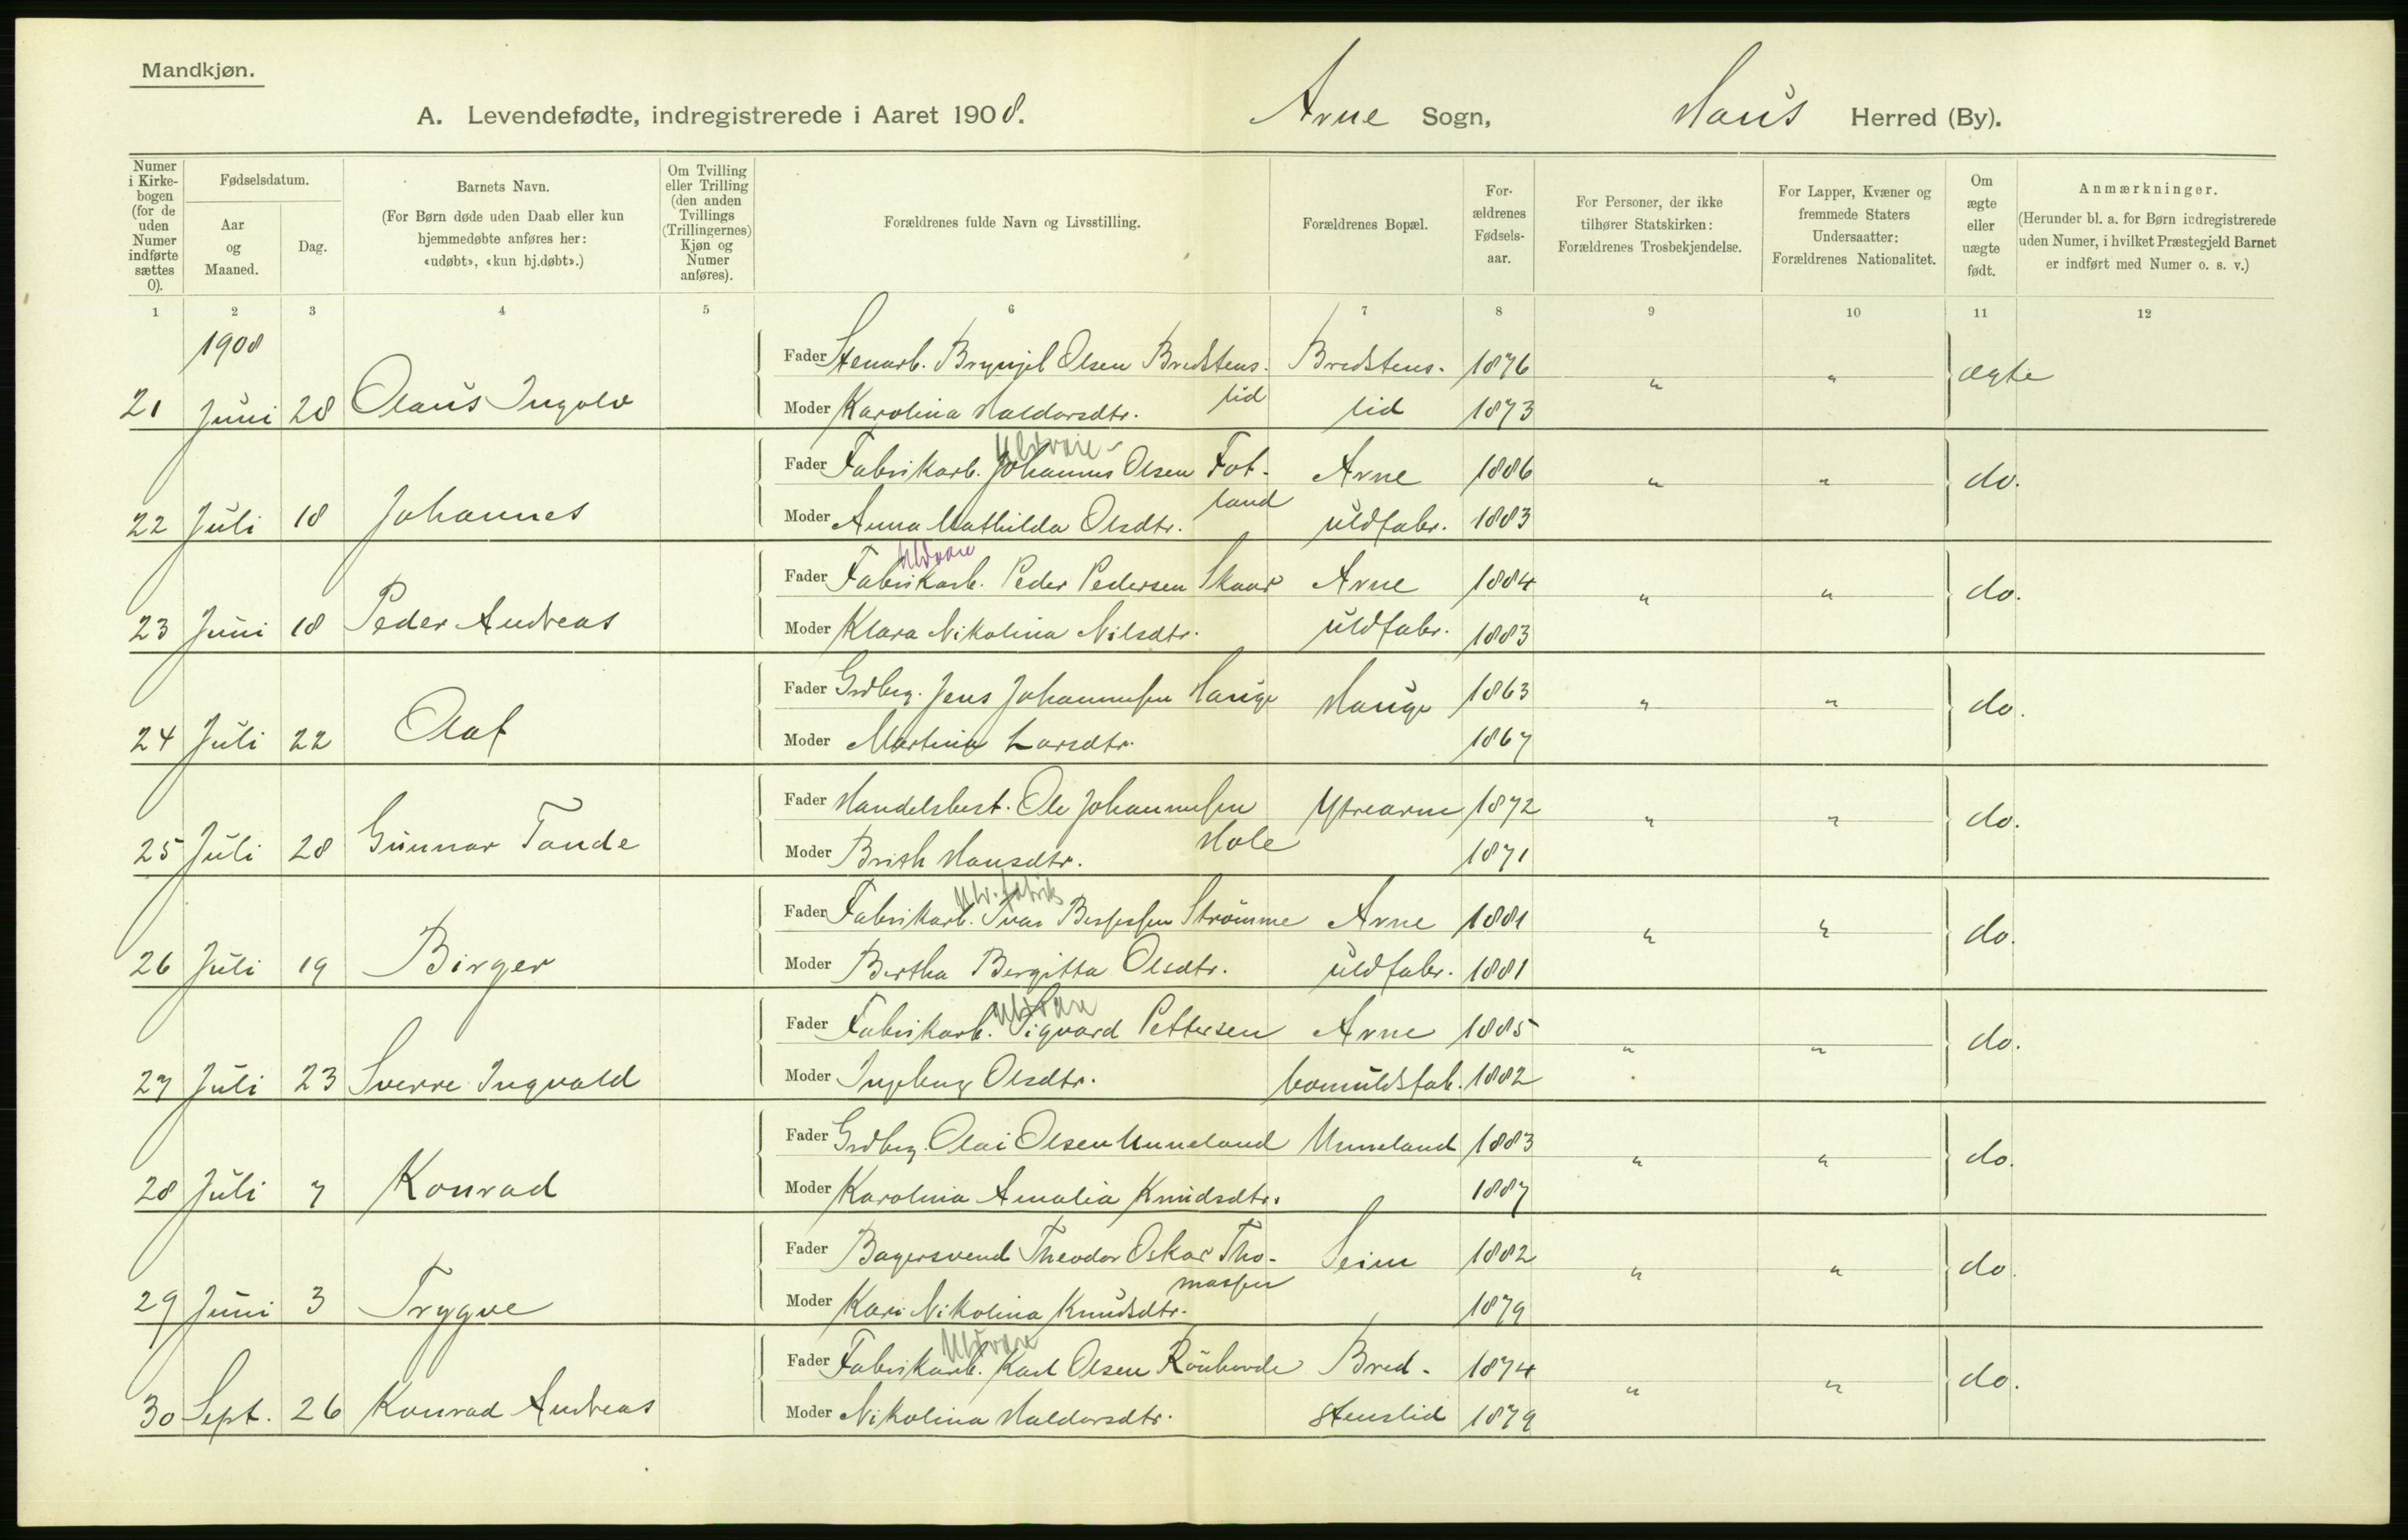 Mandkjøn.
A. Levendefødte, indregistrerede i Aaret 1908. Arne Sogn, Haus Herred (By).
Numer i Kirkebogen (for de uden Numer indførte sættes 0).
Fødselsdatum.
Aar og Maaned.
Dag.
Barnets Navn.
(For Børn døde uden Daab eller kun hjemmedøbte anføres her: «udøbt», «kun hj.døbt».)
Om Tvilling eller Trilling (den anden Tvillings (Trillingernes) Kjøn og Numer anføres).
Forældrenes fulde Navn og Livsstilling.
Forældrenes Bopæl.
Forældrenes Fødselsaar.
For Personer, der ikke tilhører Statskirken: Forældrenes Trosbekjendelse.
For Lapper, Kvæner og fremmede Staters Undersaatter: Forældrenes Nationalitet.
Om ægte eller uægte født.
Anmærkninger.
(Herunder bl. a. for Børn indregistrerede uden Numer, i hvilket Præstegjeld Barnet er indført med Numer o. s. v.)
1 2 3 4 5 6 7 8 9 10 11 12
1908
Fader Stenarb. Brynjel Olsen Bredstens- Bredstens- 1876 " " ægte
21 Juni 28 Olaus Ingolv Moder Karolina Haldorsdtr. lid lid 1873
Uldvare
Fader Fabrikarb. Johannes Olsen Fot- Arne 1886 " " do.
22 Juli 18 Johannes Moder Anna Mathilda Olsdtr. land uldfabr. 1883
Uldvare
Fader Fabrikarb. Peder Pedersen Skaar Arne 1884 " " do.
23 Juni 18 Peder Andreas Moder Klara Nikolina Nilsdtr. uldfabr. 1883
Fader Grdbrg. Jens Johannessen Hauge Hauge 1863 " " do.
24 Juli 22 Olaf Moder Martina Larsdtr. 1867
Fader Handelsbest. Ole Johannessen Ytrearne 1872 " " do.
25 Juli 28 Gunnar Tande Moder Brith Hansdtr. Hole 1871
Ulv. fabrik
Fader Fabrikarb. Ivar Strømme Arne 1881 " " do.
26 Juli 19 Birger Moder Bertha Bergitta Olsdtr. uldfabr. 1881
Uldvare
Fader Fabrikarb. Sigvard Pettersen Arne 1885 " " do.
27 Juli 23 Sverre Ingvald Moder Ingeborg Olsdtr. bomuldsfab. 1882
Fader Grdbrg. Olai Olsen Unneland Unneland 1883 " " do.
28 Juli 7 Konrad Moder Karolina Amalia Knudsdtr. 1887
Fader Bagersvend Theodor Oskar Tho- Seim 1882 " " do.
29 Juni 3 Trygve Moder Kari Nikolina Knudsdtr. massen 1879
Uldvare
Fader Fabrikarb. Karl Olsen Rönhovde Bred- 1874 " " do.
30 Sept. 26 Konrad Andreas Moder Nikolina Haldorsdtr. stenslid 1879